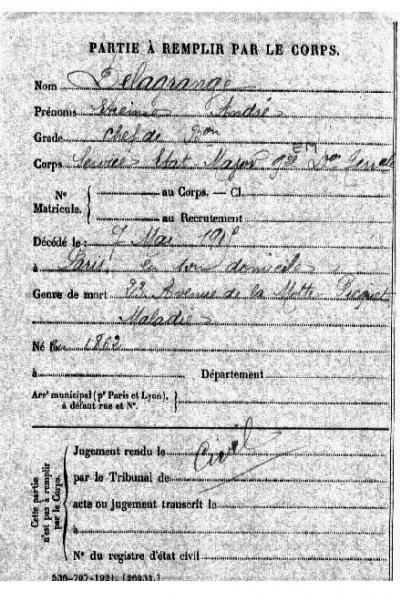 PARTIE À REMPLIR PAR LE CORPS.
Nom Delagrange
Prénoms Etienne André
Grade Chef de Bon
Corps Service Etat-Major EM
N° Matricule. { au Corps. — Cl.
au Recrutement
Décédé le : 7 Mai
à Paris, en son domicile
Genre de mort 23 Avenue de la Motte Picquet
Maladie
Né le 1862
à Département
Arrt municipal (pr Paris et Lyon), à défaut rue et N°.
Cette partie n'est pas à remplir par le Corps.
Jugement rendu le Civil
par le Tribunal de
acte ou jugement transcrit le
à
N° du registre d'état civil
536-707-1921. [26834.]